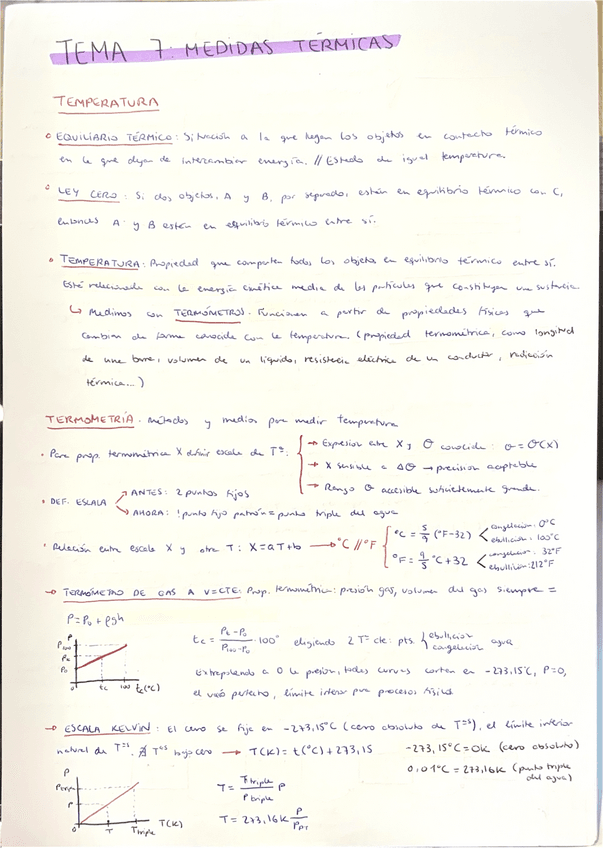 TEMA 7: MEDIDAS TÉRMICAS
TEMPERATURA
EQUILIARIO TÉRMICO: Situación a la que llegan los objetos en contacto térmico
en la que dejan de intercambiar energía. // Estado de igual temperatura
LEY CERO: Si dos objetos, A y B, por separado, están en equilibrio térmico con C,
entonces A y B están en equilibrio térmico entre sí.
TEMPERATURA: Propiedad que comparten todos los objetos en equilibrio térmico entre sí.
Está relacionada con la energía cinética media de las partículas que constituyen una sustancia
↳ Medimos con TERMÓMETROS. Funcionan a partir de propiedades físicas que
cambian de forma conocida con la temperatura. (propiedad termométrica, como longitud
de una barra, volumen de un líquido, resistencia eléctrica de un conductor, radiación
térmica...)
TERMOMETRÍA. métodos y medios por medir temperatura
· Para prop. termométrica X definir escala de Tª:
→ Expresión entre X y θ conocida: θ = θ(X)
→ X sensible a Δθ → precisión aceptable
→ Rango θ accesible suficientemente grande.
· DEF. ESCALA
ANTES: 2 puntos fijos
AHORA: 1 punto fijo patrón = punto triple del agua
· Relación entre escala X y otra T: X = aT + b → °C // °F
°C = 5/9 (°F-32) congelación: 0°C
ebullición: 100°C
°F = 9/5 °C + 32 congelación: 32°F
ebullición: 212°F
→ TERMÓMETRO DE GAS A V=CTE: Prop. termométrica: presión gas, volumen del gas siempre =
P = P₀ + ρgh
P
P₁₀₀
Pt
P₀
0 tc 100 tc(°C)
tc = Pt - P₀ / P₁₀₀ - P₀ · 100° eligiendo 2 Tª cte: pts. ebullición
congelación agua
Extrapolando a 0 la presión, todas curvas cortan en -273,15°C, P=0,
el vacío perfecto, límite inferior para procesos físicos
→ ESCALA KELVIN: El cero se fija en -273,15°C (cero absoluto de Tªs), el límite inferior
natural de Tªs. ∄ Tªs bajo cero → T(K) = t(°C) + 273,15
-273,15°C = 0K (cero absoluto)
0,01°C = 273,16K (punto triple
del agua)
P
Ptriple
P
0 T Ttriple T(K)
T = Ttriple / Ptriple P
T = 273,16K P / PPT